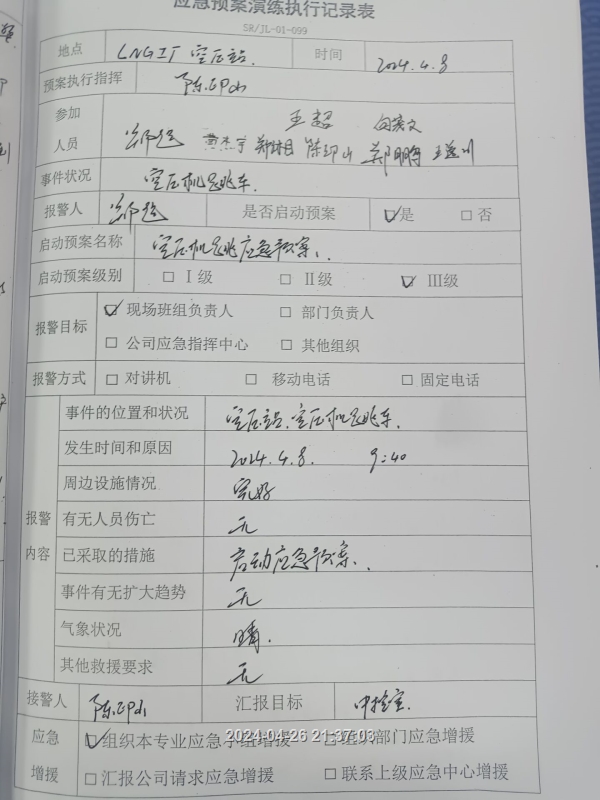 应急预案演练执行记录表
SR/JL-01-099
地点 LNG工厂 空压站. 时间 2024.4.8
预案执行指挥 陈印山
王超
参加人员 郑鹏 王
事件状况 空压机跳车.
报警人 是否启动预案 ☑是 □否
启动预案名称 空压机跳应急预案.
启动预案级别 □Ⅰ级 □Ⅱ级 ☑Ⅲ级
报警目标 ☑现场班组负责人 □部门负责人
□公司应急指挥中心 □其他组织
报警方式 □对讲机 □移动电话 □固定电话
报警内容 事件的位置和状况 空压站.空压机跳车.
发生时间和原因 2024.4.8. 9:40
周边设施情况 完好
有无人员伤亡 无
已采取的措施 启动应急预案.
事件有无扩大趋势 无
气象状况 晴.
其他救援要求 无
接警人 陈印山 汇报目标 中控室.
应急增援 ☑组织本专业应急小组增援 □组织部门应急增援
2024-04-26 21:37:03
□汇报公司请求应急增援 □联系上级应急中心增援